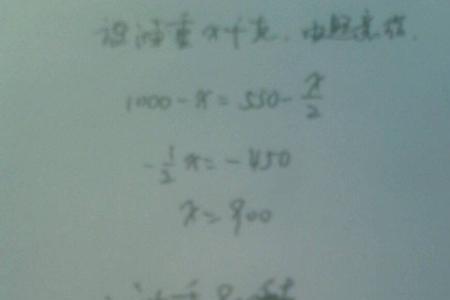 设油重x千克,由题意得.
1000-x=550-x/2
-1/2x=-450
x=900